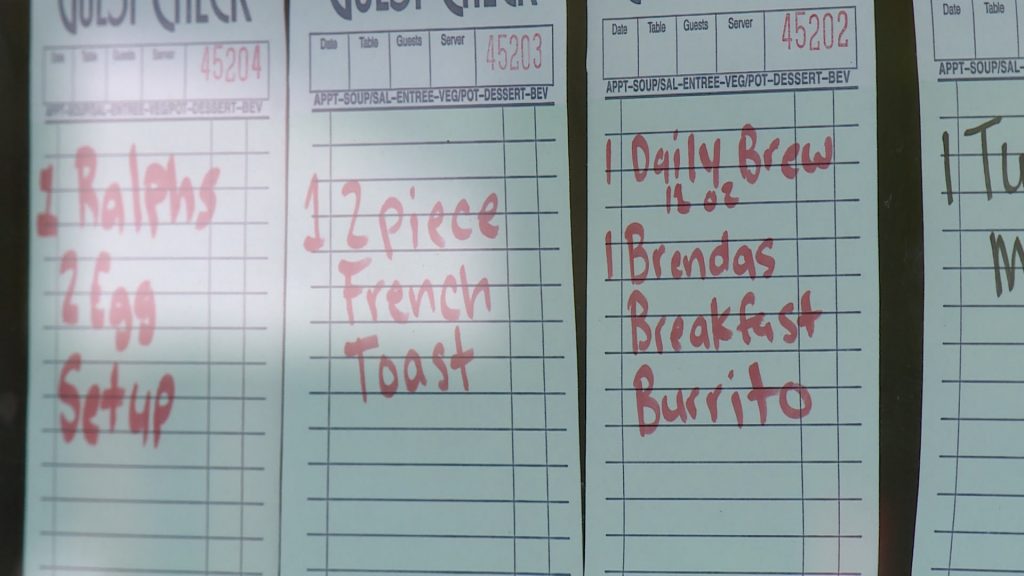 GUEST CHECK
Date Table Guests Server 45204
APPT-SOUP/SAL-ENTREE-VEG/POT-DESSERT-BEV
1 Ralphs
2 Egg
Setup
GUEST CHECK
Date Table Guests Server 45203
APPT-SOUP/SAL-ENTREE-VEG/POT-DESSERT-BEV
1 2 piece
French
Toast
Date Table Guests Server 45202
APPT-SOUP/SAL-ENTREE-VEG/POT-DESSERT-BEV
1 Daily Brew
12 oz
1 Brendas
Breakfast
Burrito
Date Table
APPT-SOUP/SAL-
1 Tu
M